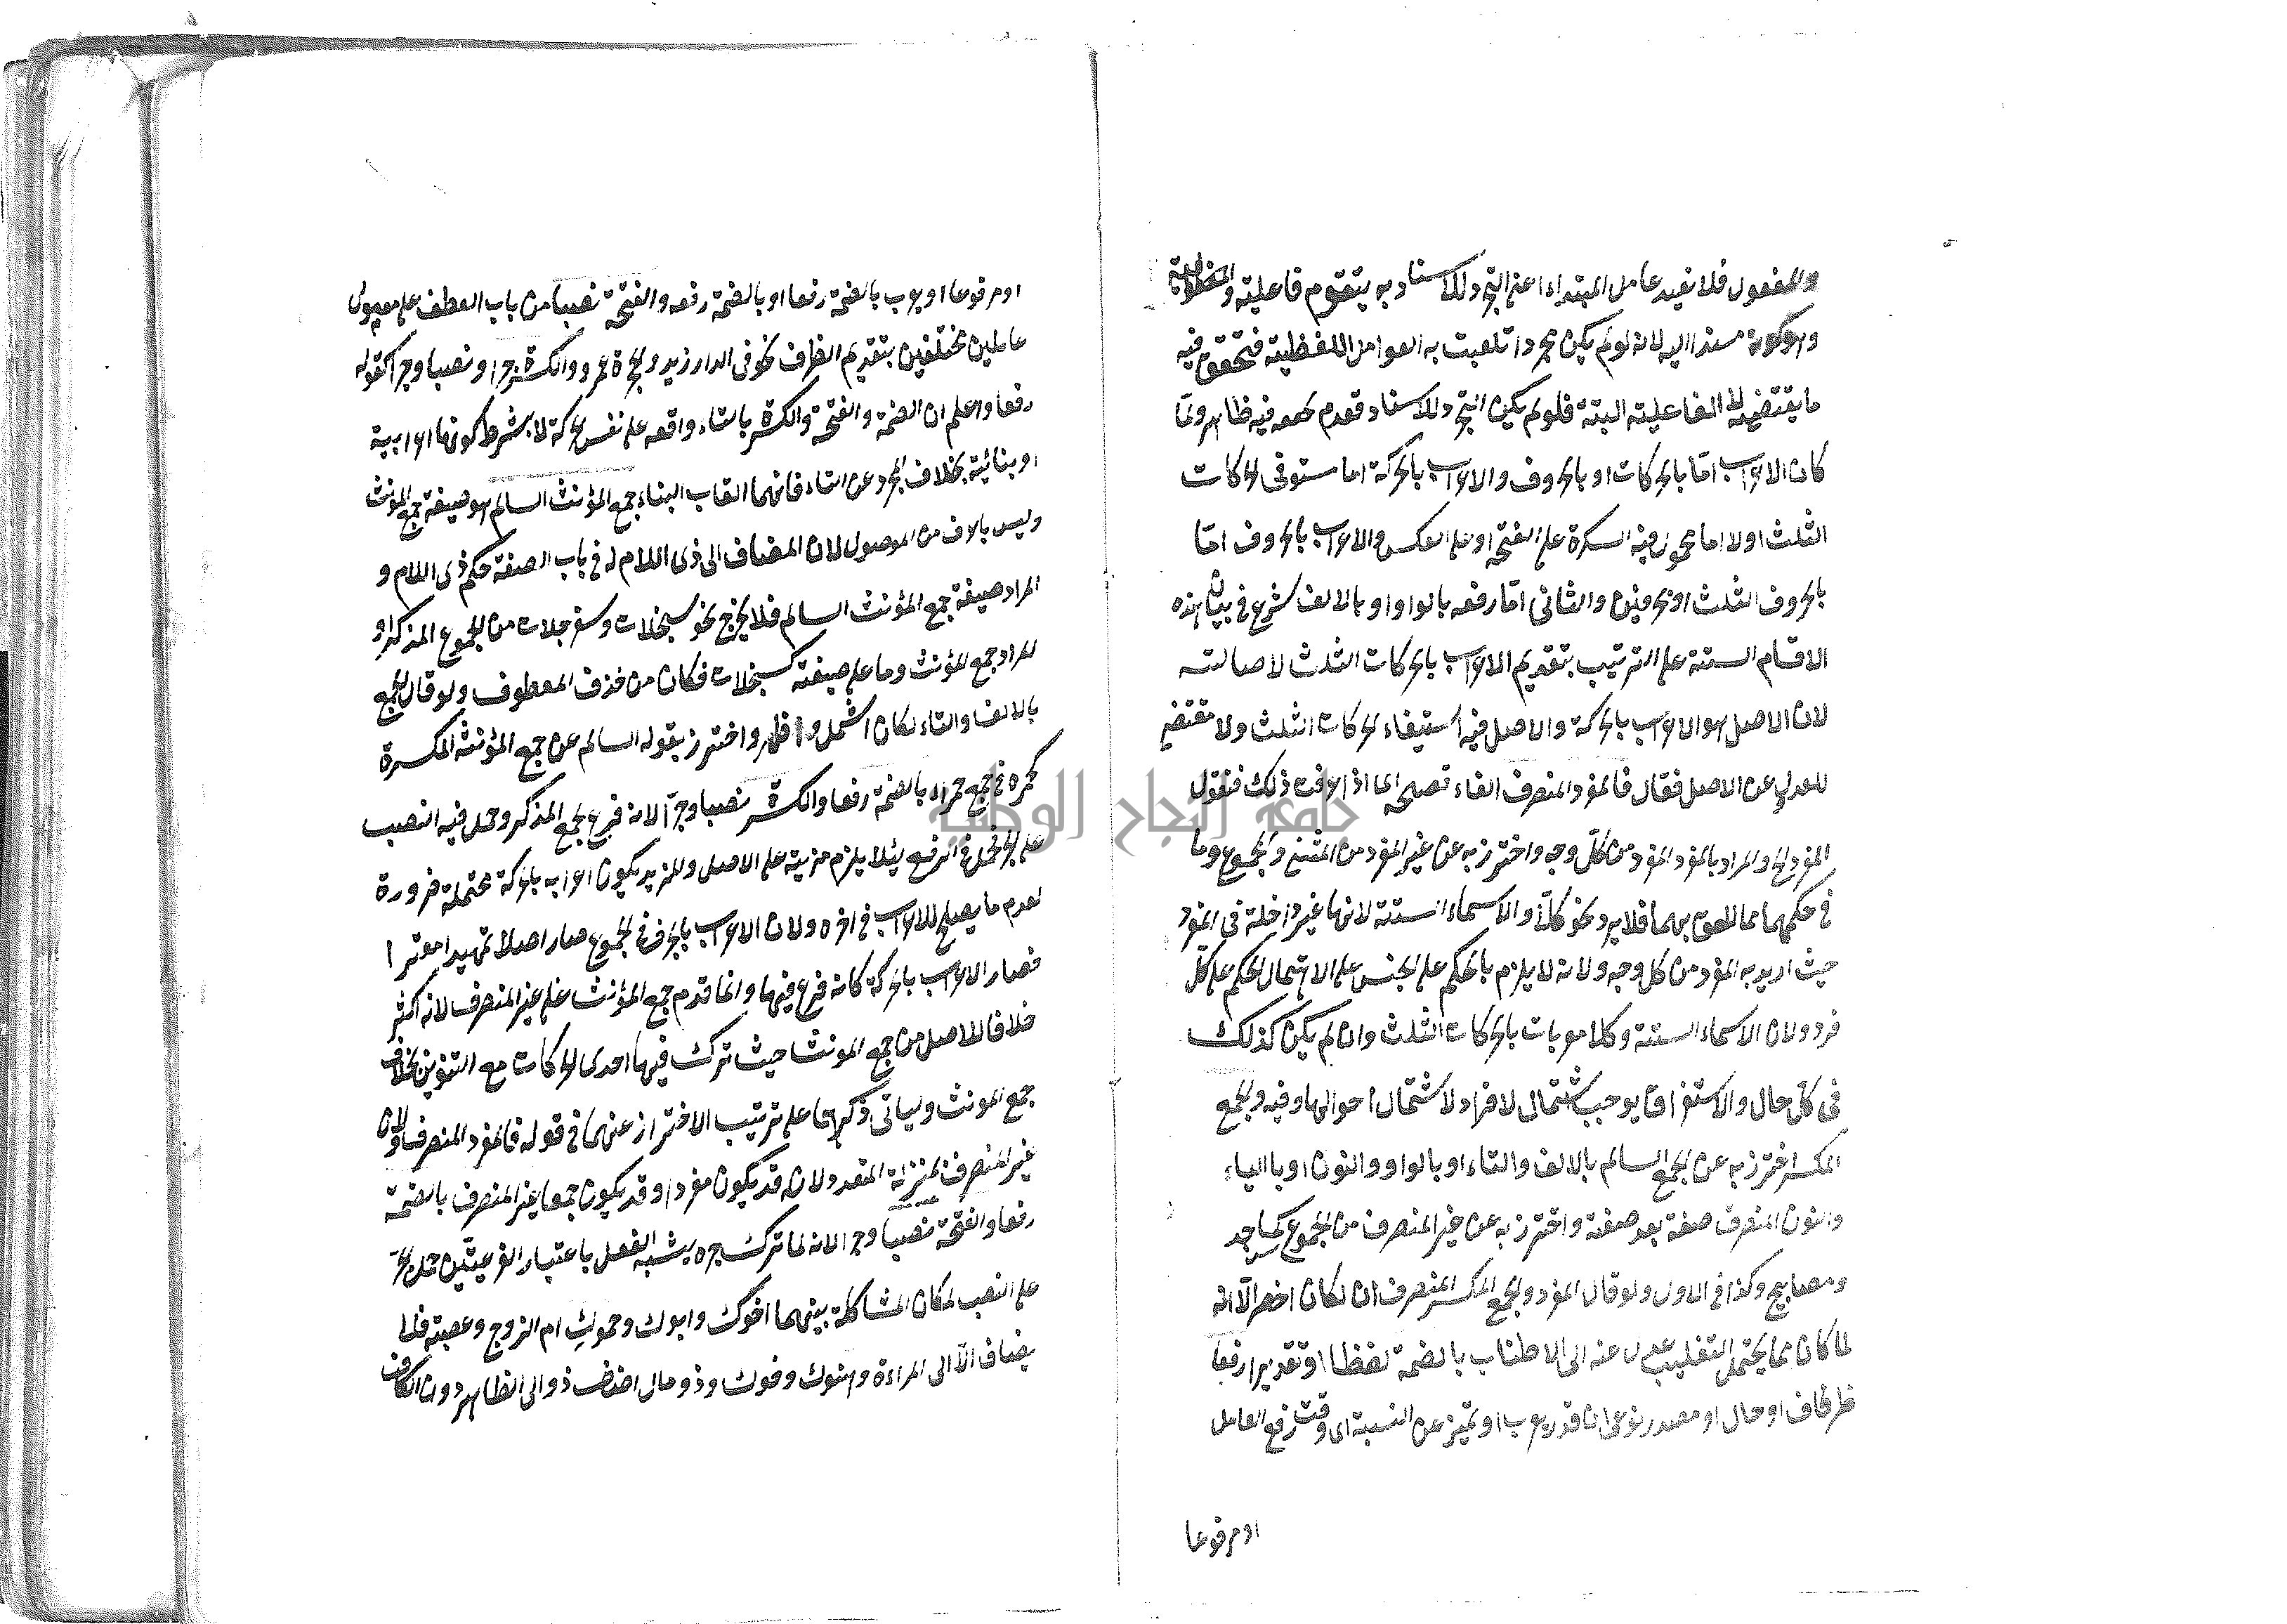 والمفعول فلا نفيد عامل المبتداء اعنى التجرد للاسناد به يتقوم فاعليته
مسندا اليه لانه لو لم يكن مجردا تلعبت به العوامل اللفظية فتحقق فيه
ما يقتضيه الفاعلية البتة فلو لم يكن التجرد للاسناد فعدم فيه ظاهر ولما
كان الاعراب اما بالحركات او بالحروف والاعراب بالحركة اما مستوفى الحركات
الثلث اولا اما محمول فيه الكسرة على الفتحة او على العكس والاعراب بالحروف اما
بالحروف الثلث او بحرفين والثانى اما رفعه بالواو او بالالف شرع فى بيان هذه
الاقسام الستة على الترتيب بتقديم الاعراب بالحركات الثلث لاصالته
لان الاصل هو الاعراب بالحركة والاصل فيه استيفاء الحركات الثلث ولا مقتضى
للعدول عن الاصل فقال فالمفرد المنصرف الفاء فصيحة اى اذا عرفت ذلك فنقول
المفرد الخ والمراد بالمفرد المفرد من كل وجه واحترز به عن غير المفرد من المثنى والمجموع وما
فى حكمهما مما الحق بهما فلا يرد نحو كلا والاسماء الستة لانها غير داخلة فى المفرد
حيث اريد به المفرد من كل وجه ولانه لا يلزم بالحكم على الجنس على الاهمال الحكم على كل
فرد ولان الاسماء الستة وكلا معربات بالحركات الثلث وان لم يكن كذلك
فى كل حال والاستغراق يوجب اشتمال الافراد لا اشتمال احوالها وفيه والجمع
المكسر احترز به عن الجمع السالم بالالف والتاء او بالواو والنون او بالياء
والنون المنصرف صفة بعد صفة واحترز به عن غير المنصرف من المجموع كمساجد
ومصابيح وكذا فى الاول ولو قال المفرد والجمع المكسر المنصرفان لكان اخصر الا انه
لما كان مما يحتمل التغليب عدل عنه الى الاطناب بالضمة لفظا او تقديرا رفعا
ظرف او حال او مصدر نوعى يعرب او تميز عن النسبة اى وقت رفع العامل
او مرفوعا
او مرفوعا او يعرب بالضمة رفعا او بالضمة رفعه والفتحة نصبا من باب العطف على معمولى
عاملين مختلفين بتقديم الظرف نحو فى الدار زيد والحجرة عمرو والكسرة جرا ونصبا وجرا كقوله
رفعا واعلم ان الضمة والفتحة والكسرة بالتاء واقعه على نفس الحركة لا بشرط كونها اعرابية
او بنائية بخلاف المجرد عن التاء فانهما القاب البناء جمع المؤنث السالم هو صيغة جمع المؤنث
وليس بالاف من الموصول لان المضاف الى ذى اللام له فى باب الصفة حكم ذى اللام و
المراد صيغة جمع المؤنث السالم فلا يخرج نحو سبحلات وسفرجلات من المجموع المذكر او
المراد جمع المؤنث وما على صيغته كسبحلات فكان من حذف المعطوف ولو قال الجمع
بالالف والتاء لكان اشمل واظهر واحترز بقوله السالم عن جمع المؤنث المكسرة
كحمر فى جمع حمراء بالضمة رفعا والكسرة نصبا وجرا لانه فرع لجمع المذكر وحمل فيه النصب
على الجر فحمل فى الفرع لئلا يلزم مزية على الاصل وللمزيد يكون اعرابه بالحركة محتملة ضرورة
لعدم ما يصلح للاعراب فى اخره ولان الاعراب بالحرف فى المجموع صار اصلا تمهيدا معتبرا
فصار الاعراب بالحركة كانه فرع فيها وانما قدم جمع المؤنث على غير المنصرف لانه اكثر
خلافا للاصل من جمع المونث حيث ترك فيها احدى الحركات مع التنوين بخلاف
جمع المونث ولياتى ذكرهما على ترتيب الاحتراز عنهما فى قوله فالمفرد المنصرف ولان
غير المنصرف بمنزلة المتعدد لانه قد يكون مفردا وقد يكون جمعا غير المنصرف بالضمة
رفعا والفتحة نصبا وجرا لانه لما ترك جره بشبه الفعل باعتبار الفرعيتين حمل الجر
على النصب لمكان المشاكلة بينهما اخوك وابوك وحموك ام الزوج وعصبته فلا
يضاف الا الى المراءة وهنوك وفوك وذو مال اضف ذو الى الظاهر دون الكاف